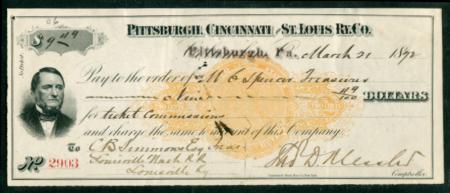 PITTSBURGH, CINCINNATI AND ST. LOUIS RY. CO.
$9 49
Pittsburgh, Pa. March 21 1892
Pay to the order of M C Spencer Treasurer
Nine 49/100 DOLLARS
for ticket Commissions
and charge the same to account of this Company.
To C B Simmons Esq Treas
Louisville Nash R R
Louisville Ky
No. 2903
Comptroller.